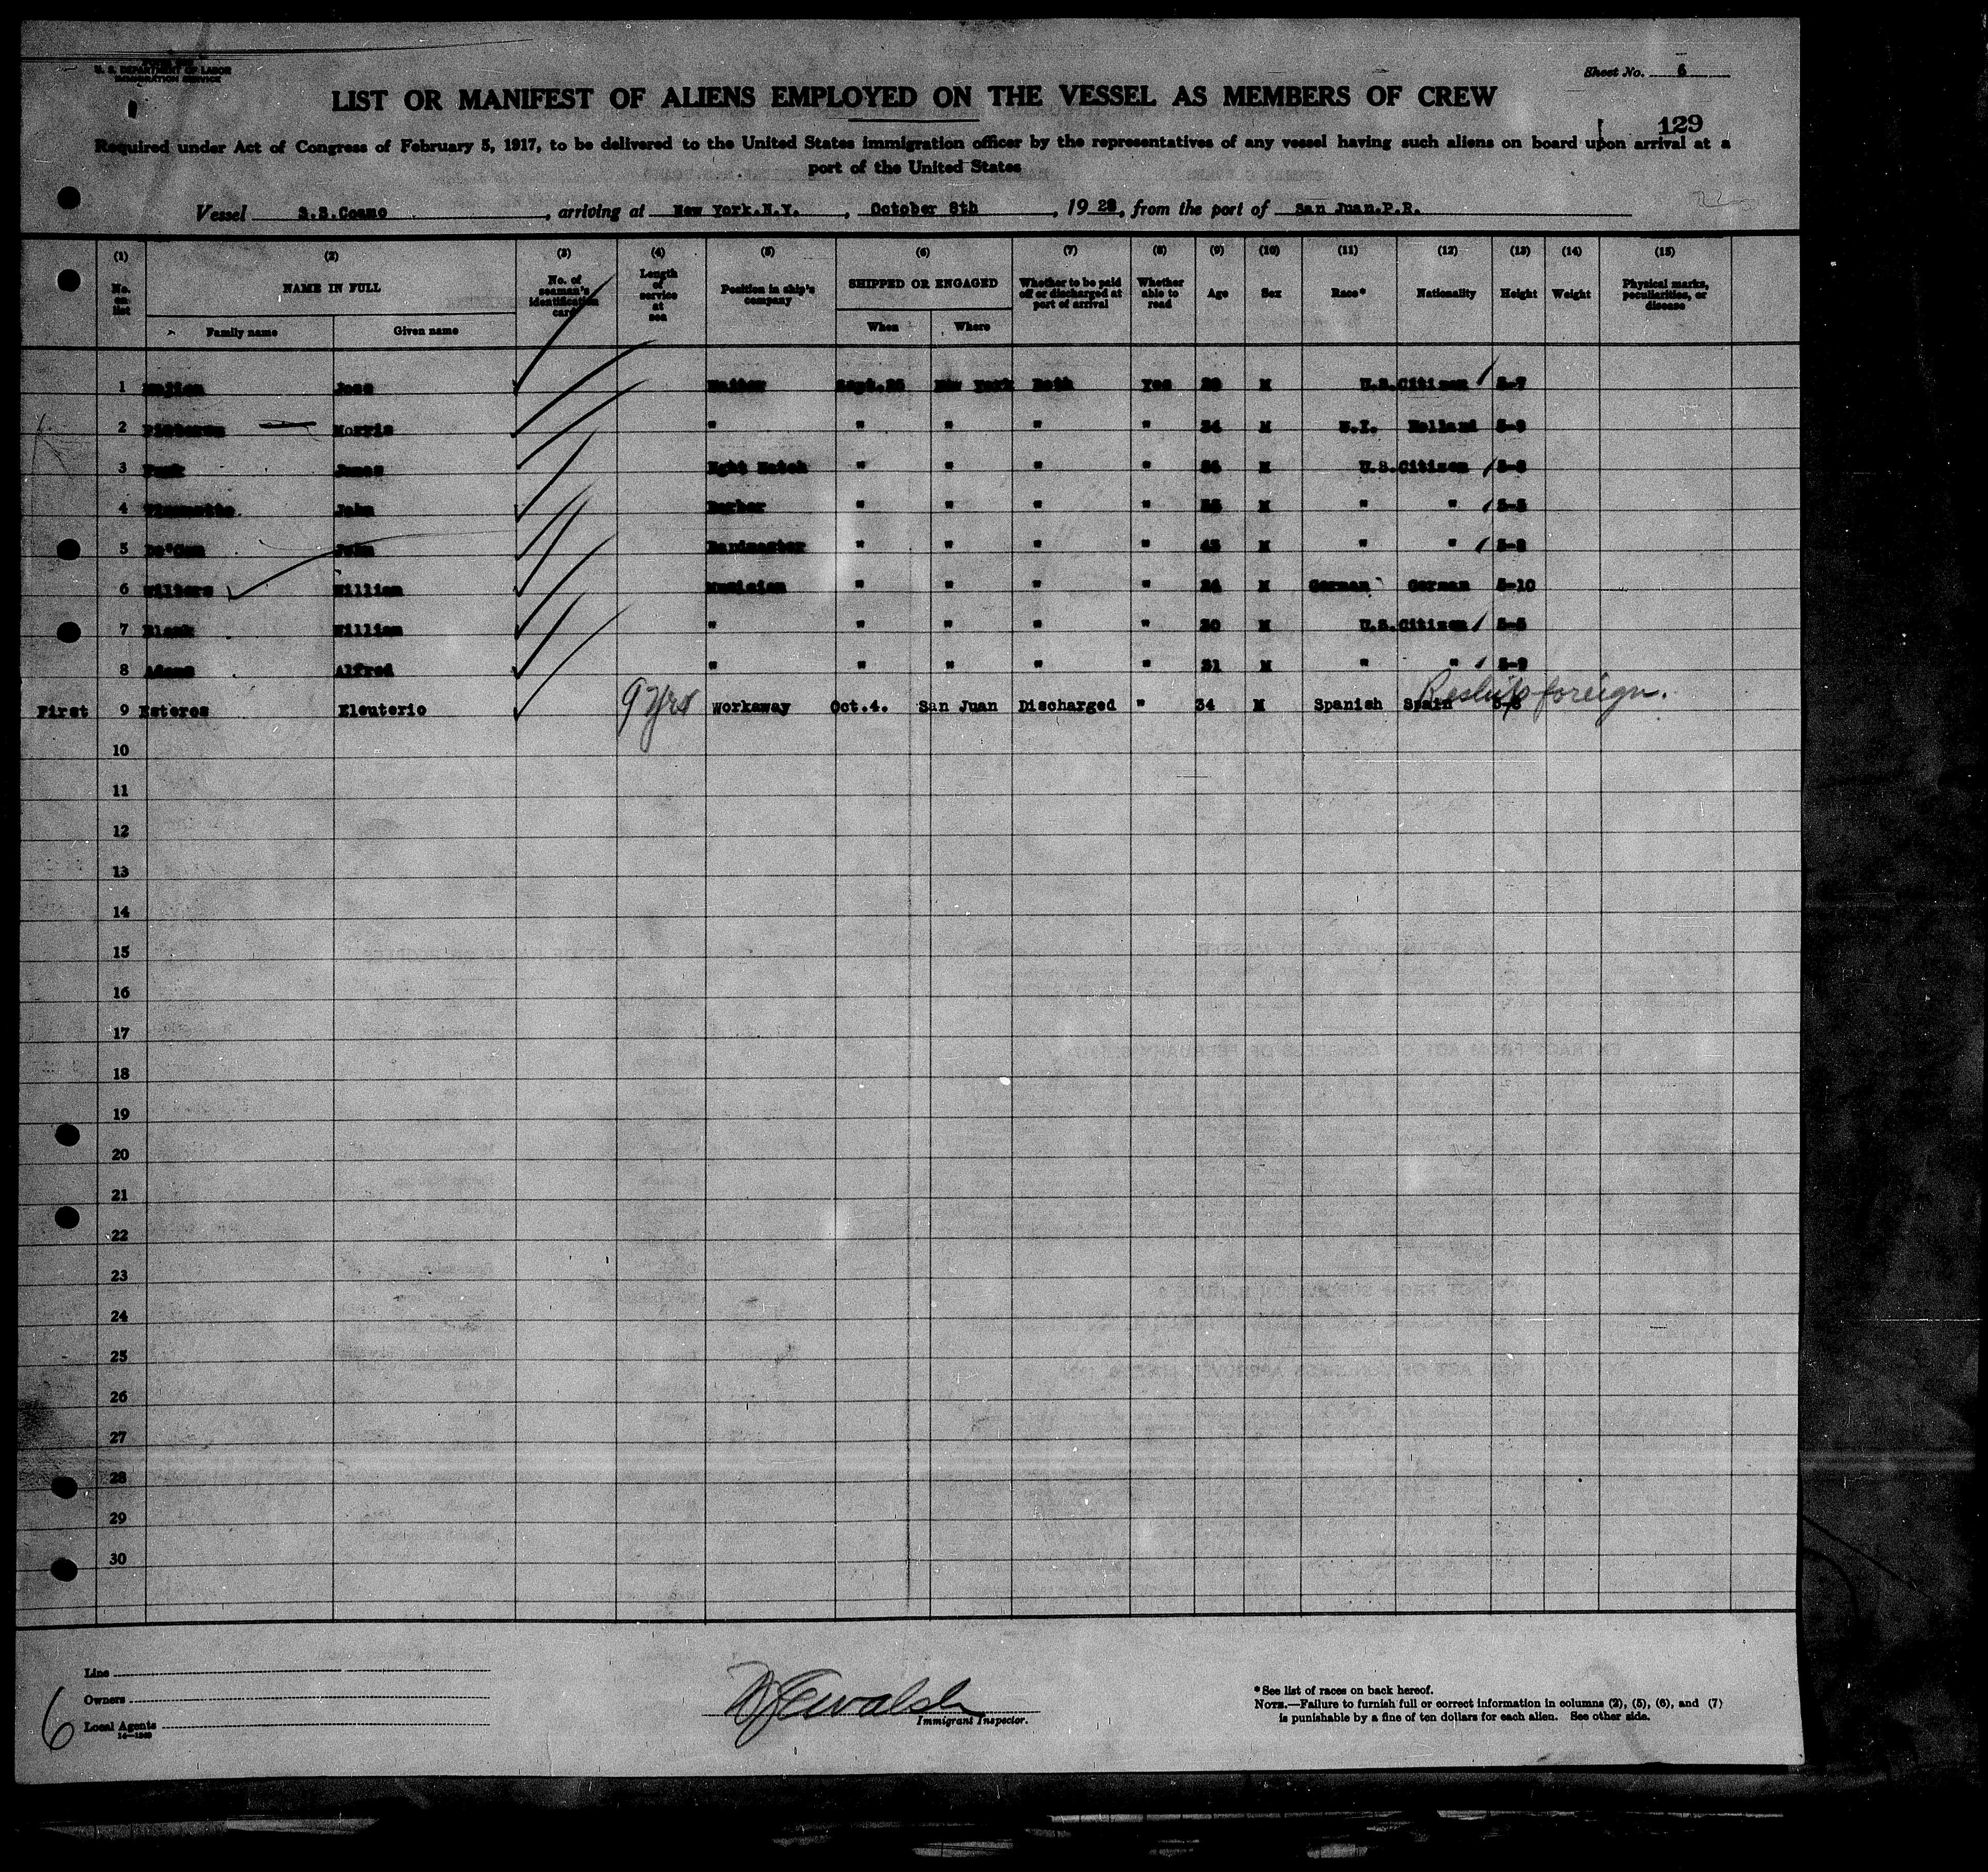 U. S. DEPARTMENT OF LABOR
IMMIGRATION SERVICE
Sheet No. 6
LIST OR MANIFEST OF ALIENS EMPLOYED ON THE VESSEL AS MEMBERS OF CREW
129
Required under Act of Congress of February 5, 1917, to be delivered to the United States immigration officer by the representatives of any vessel having such aliens on board upon arrival at a
port of the United States
Vessel S.S.Coamo, arriving at New York.N.Y., October 8th, 1928, from the port of San Juan.P.R.
(1) (2) (3) (4) (5) (6) (7) (8) (9) (10) (11) (12) (13) (14) (15)
No. on list NAME IN FULL No. of seaman's identification card Length of service at sea Position in ship's company SHIPPED OR ENGAGED Whether to be paid off or discharged at port of arrival Whether able to read Age Sex Race* Nationality Height Weight Physical marks, peculiarities, or disease
Family name Given name When Where
1 Jose Waiter Sept.25 New York Both Yes M U.S.Citizen 5-7
2 Morris " " " " " 34 M W.I. Holland 5-9
3 James Nght Watch " " " " M U.S.Citizen
4 John Barber " " " " M " " 5-5
5 John Bandmaster " " " " M " "
6 Wilters William Musician " " " " 24 M German German 5-10
7 Blank William " " " " " 30 M U.S.Citizen
8 Adams Alfred " " " " " 31 M " " 5-9
First 9 Esteres Eleuterio 9 yrs Workaway Oct.4. San Juan Discharged " 34 M Spanish Spain Reship foreign.
10
11
12
13
14
15
16
17
18
19
20
21
22
23
24
25
26
27
28
29
30
Line
Owners
Local Agents
14—1240
6
Immigrant Inspector.
* See list of races on back hereof.
NOTE.—Failure to furnish full or correct information in columns (2), (5), (6), and (7)
is punishable by a fine of ten dollars for each alien. See other side.